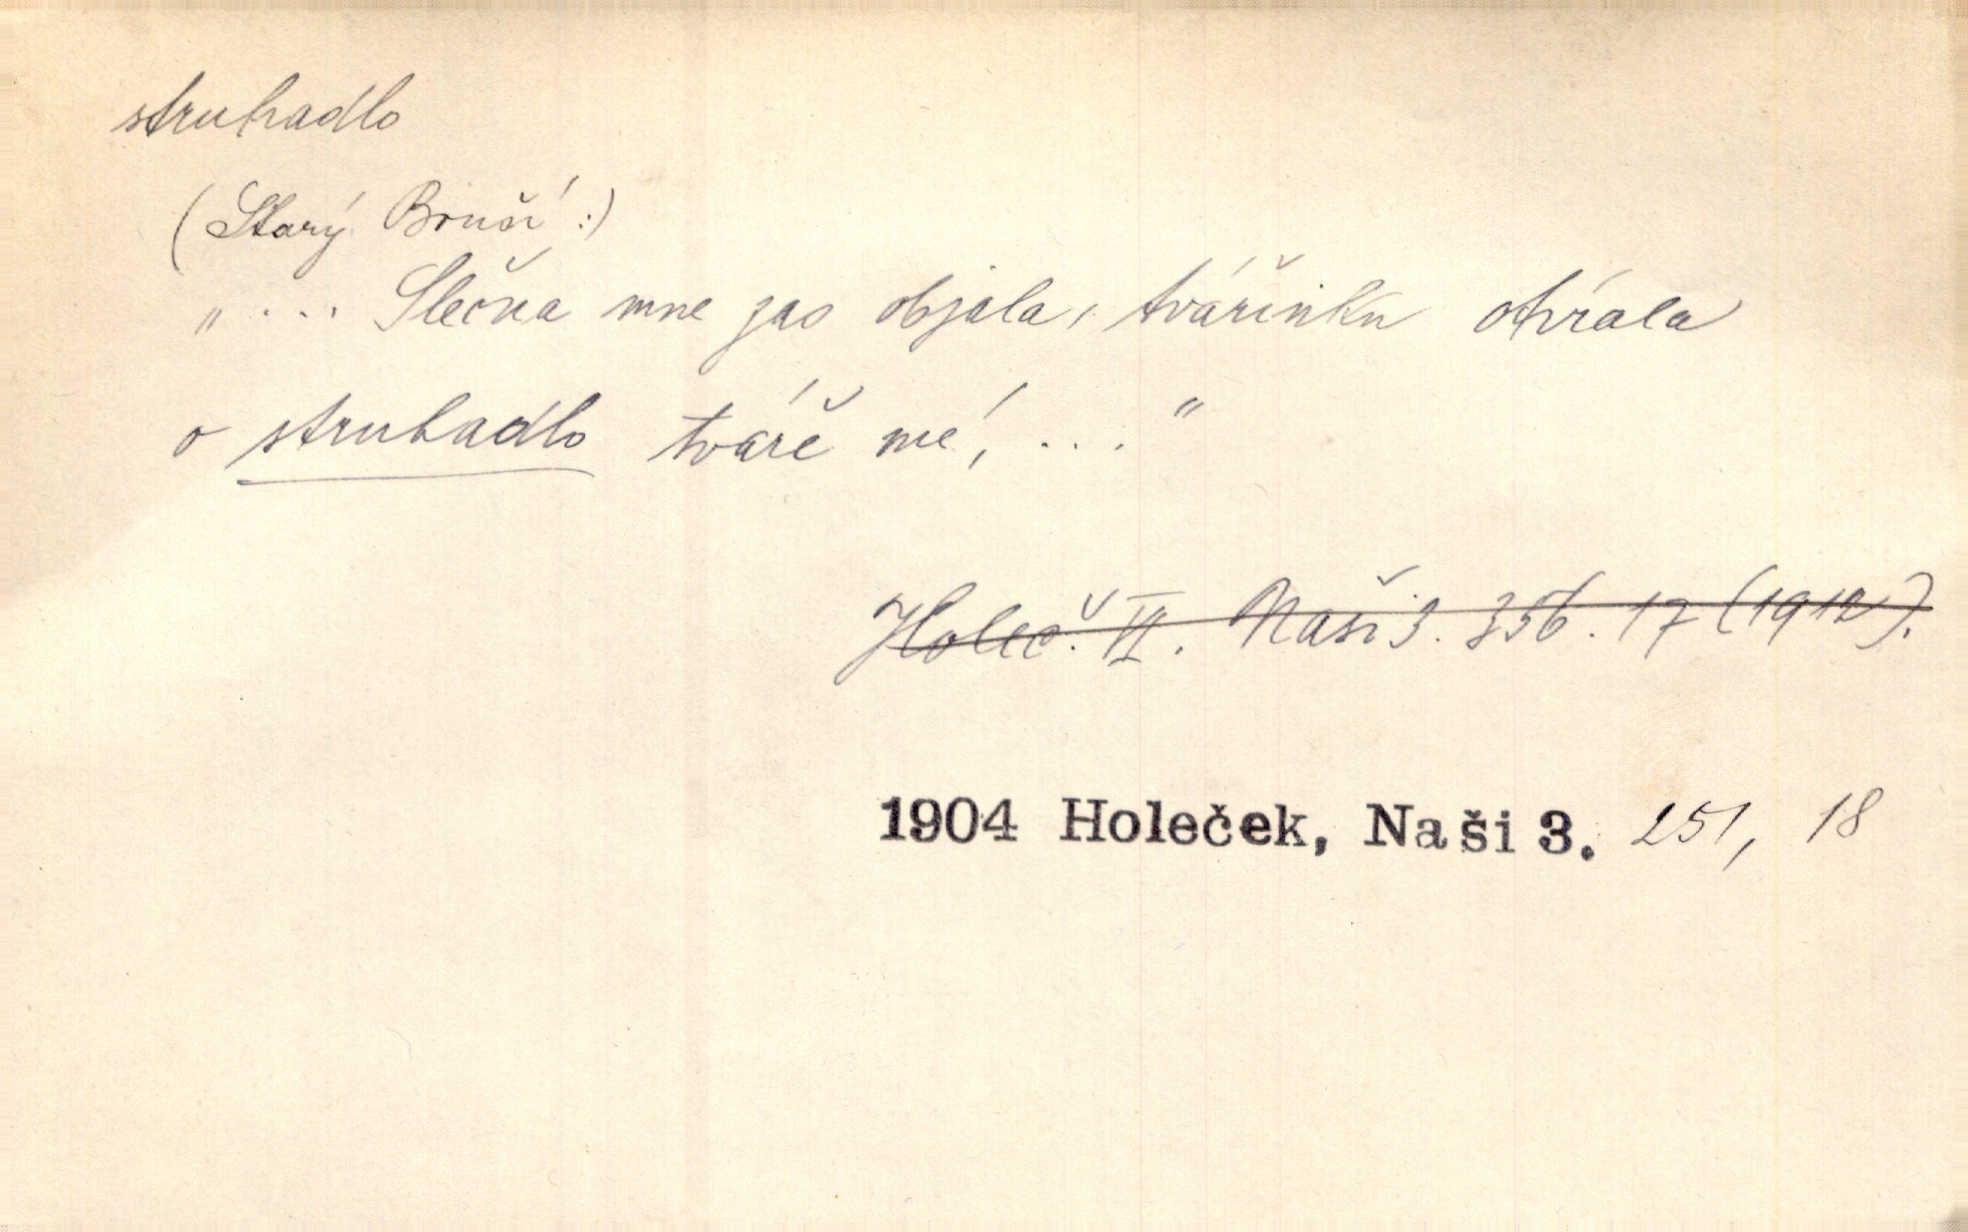 struhadlo
(Starý Bruší:)
„ ... Slečna mne jao objala, tvářinku otírala
o struhadlo tváře mé, ... "
Holeč. VI. Naši 3. 356. 17 (1912).
1904 Holeček, Naši 3. 251, 18